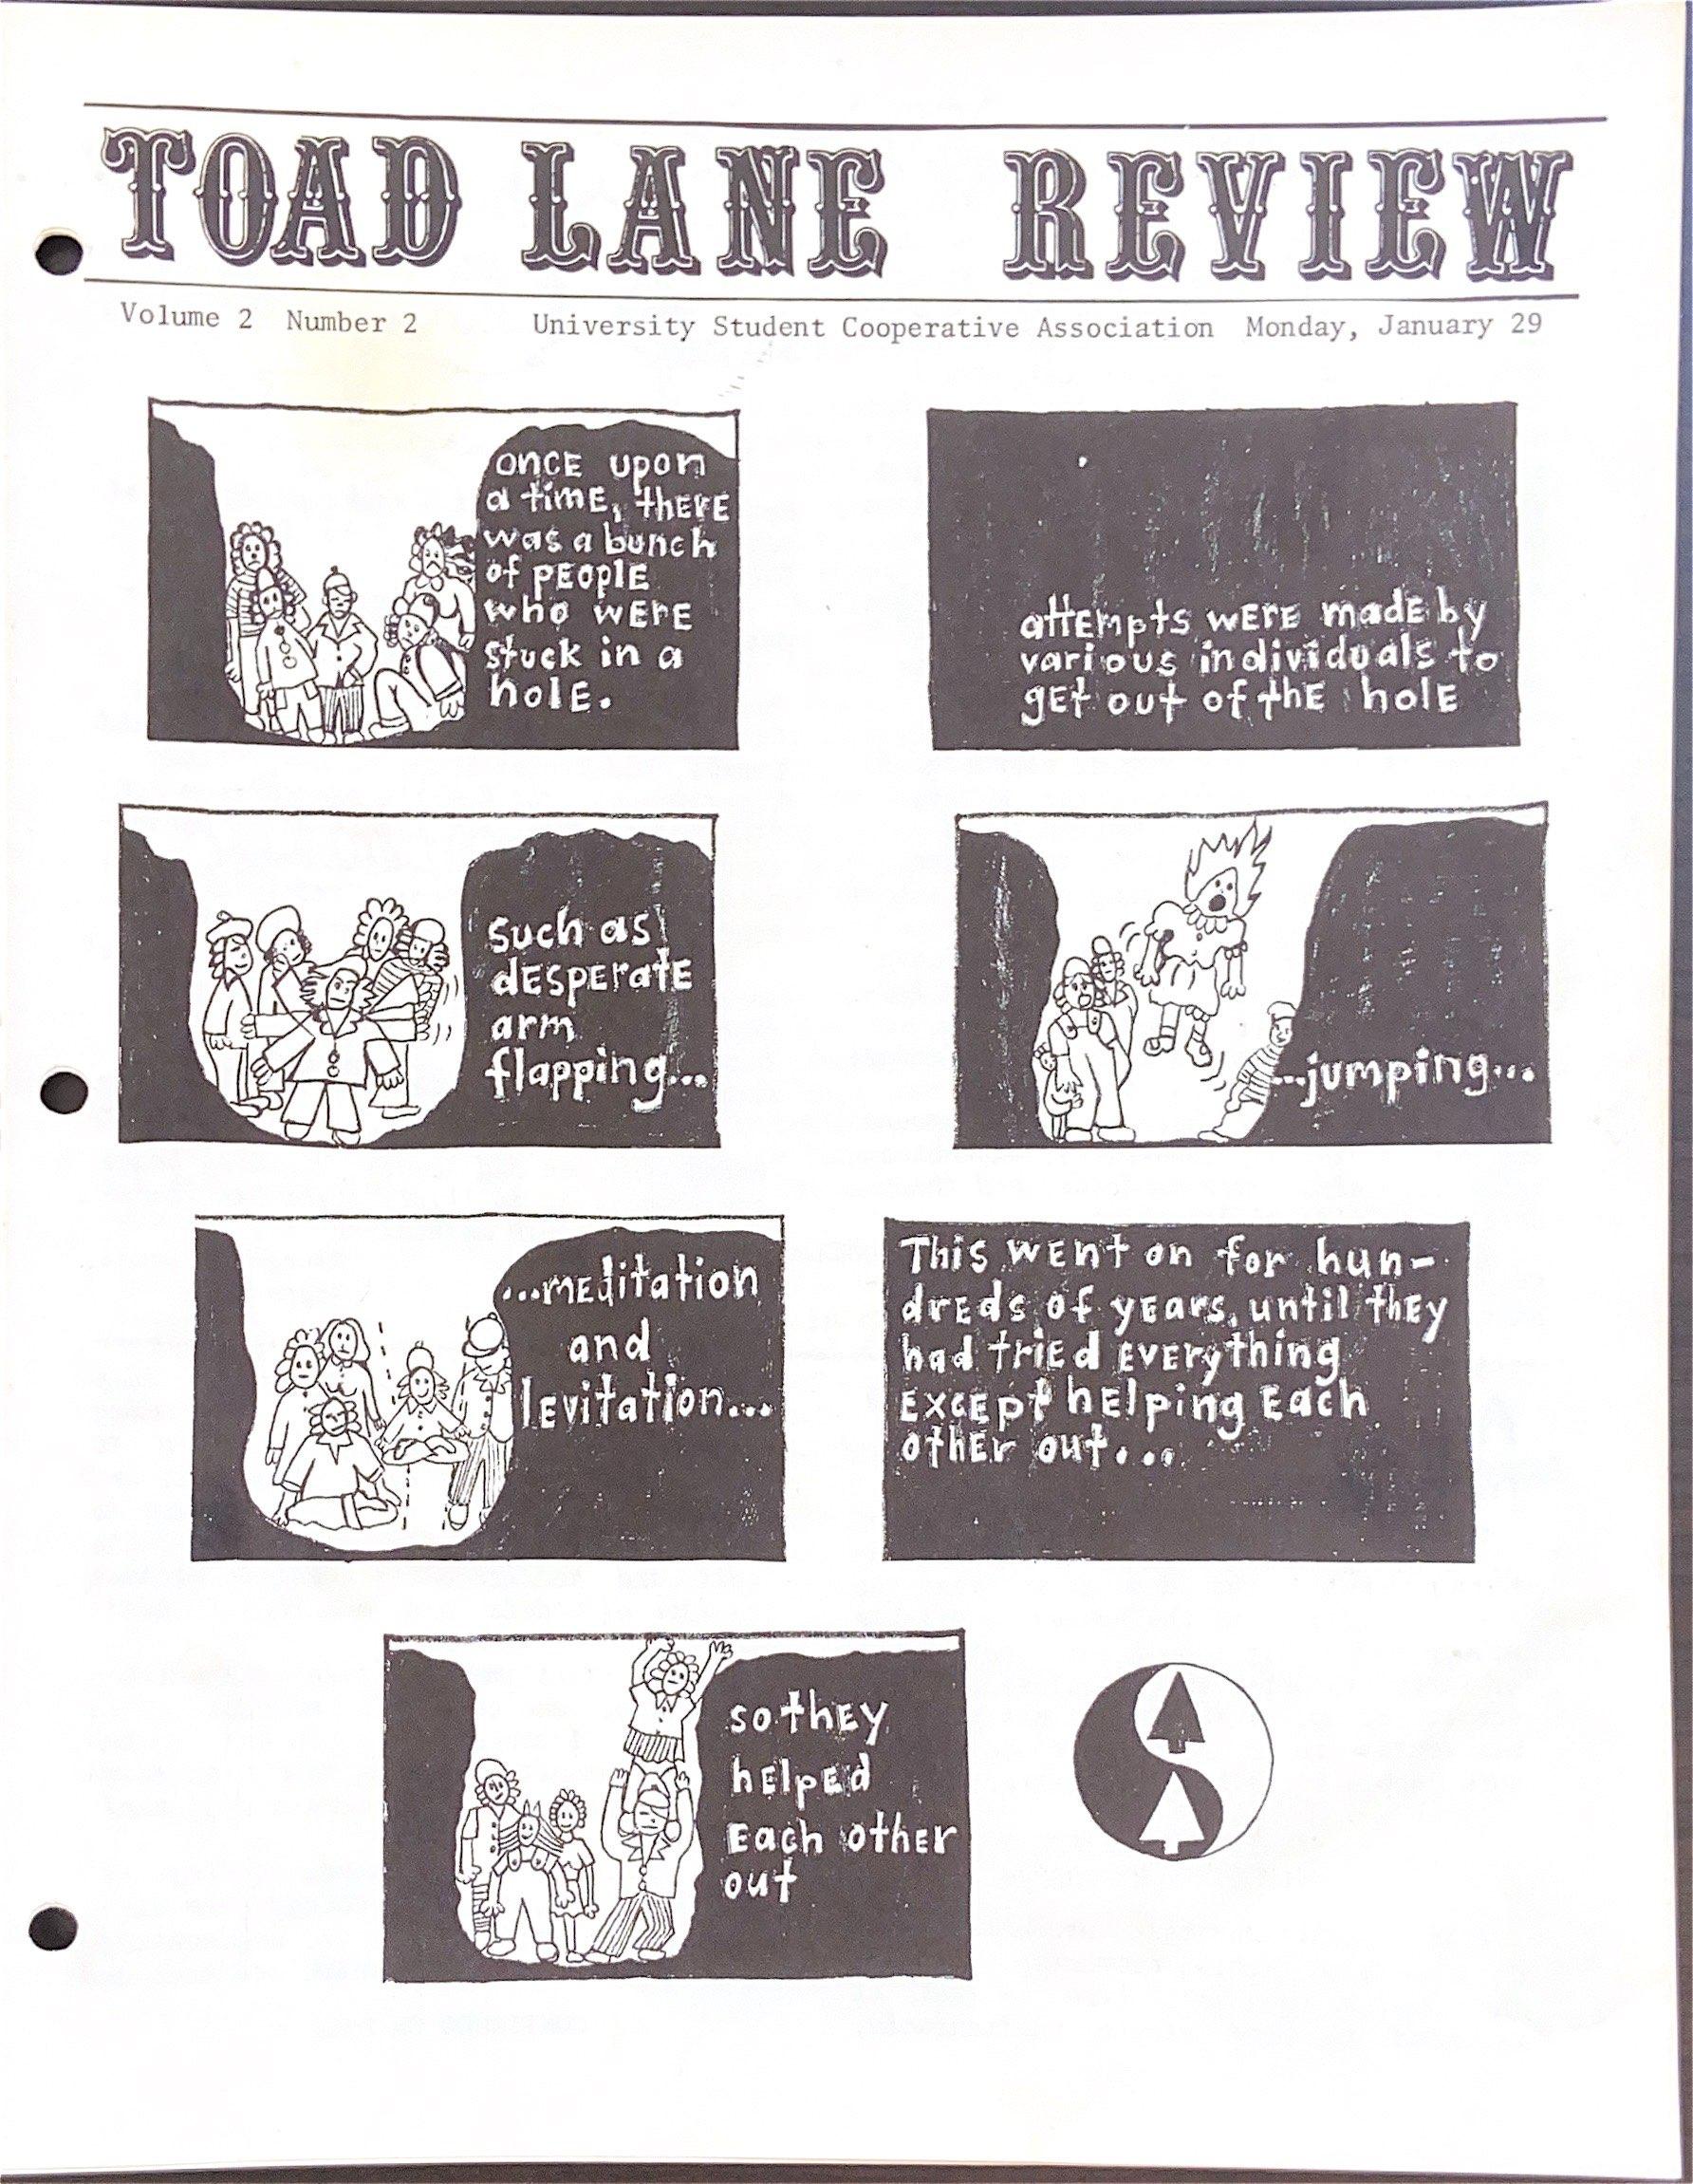 TOAD LANE REVIEW
Volume 2 Number 2 University Student Cooperative Association Monday, January 29
once upon
a time, there
was a bunch
of people
who were
stuck in a
hole.
attempts were made by
various individuals to
get out of the hole
such as
desperate
arm
flapping...
...jumping...
...meditation
and
levitation...
This went on for hun-
dreds of years, until they
had tried everything
except helping each
other out...
so they
helped
each other
out